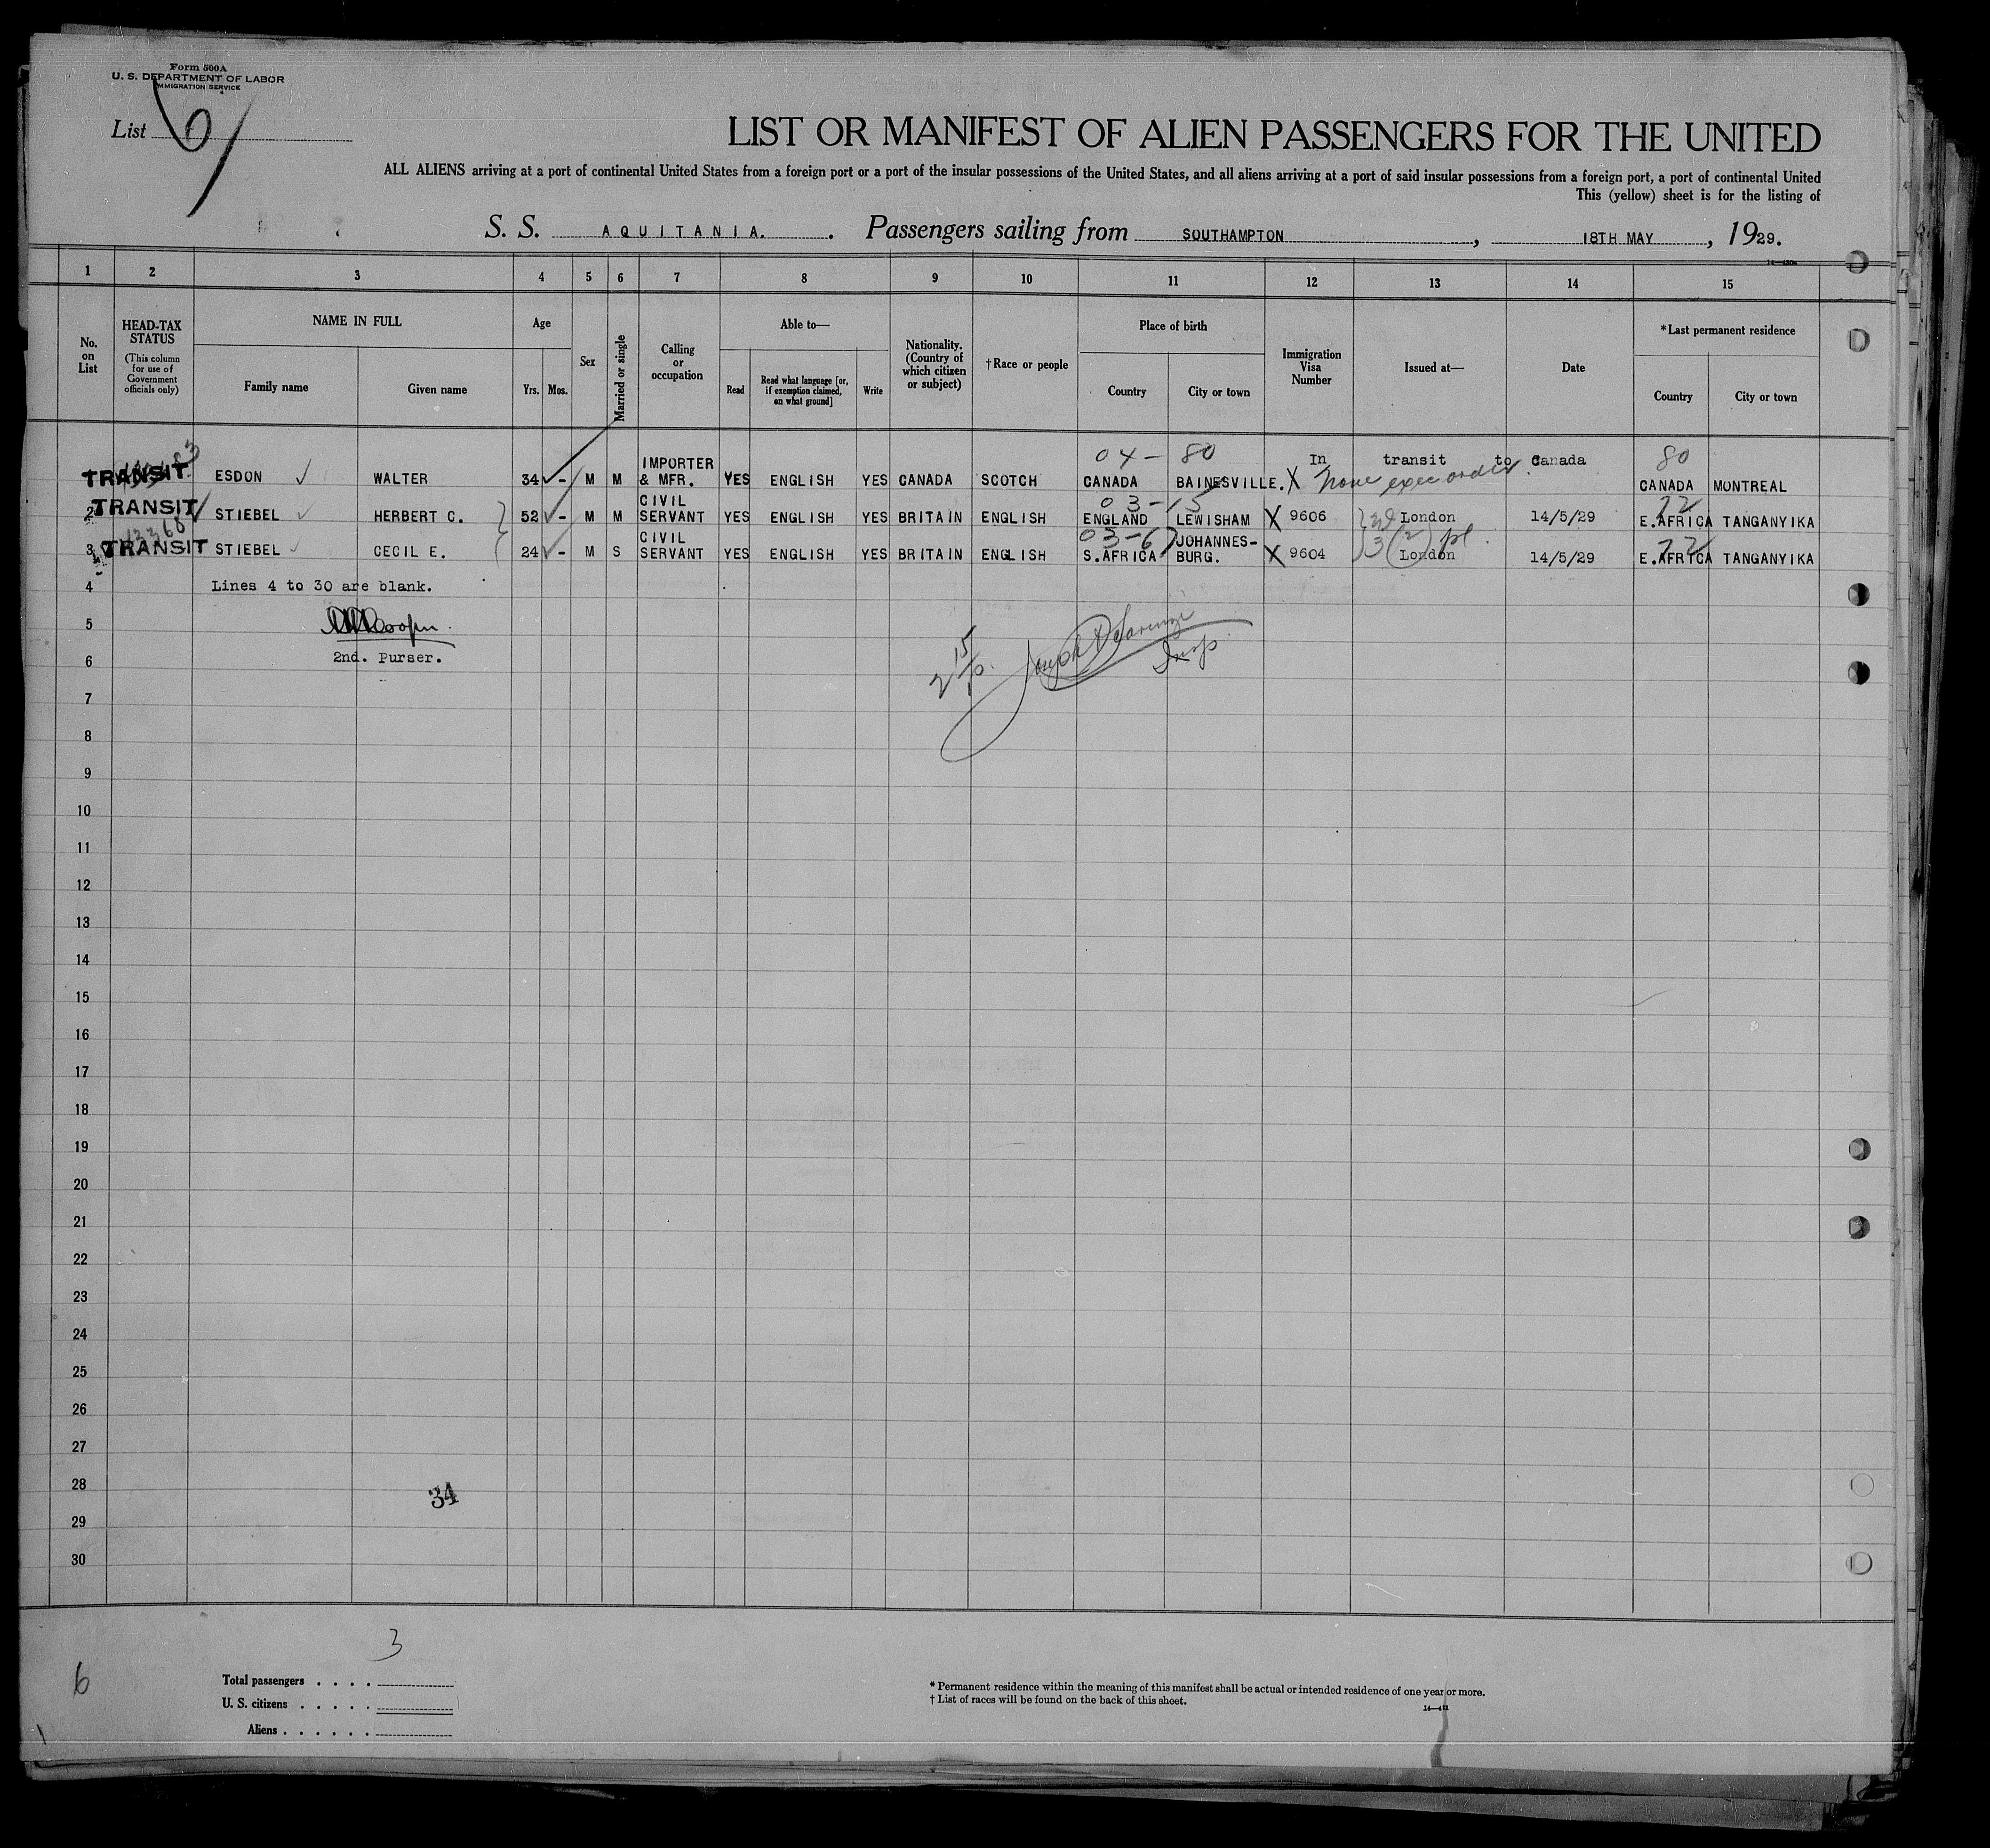 Form 500A
U. S. DEPARTMENT OF LABOR
IMMIGRATION SERVICE
List 6
LIST OR MANIFEST OF ALIEN PASSENGERS FOR THE UNITED
ALL ALIENS arriving at a port of continental United States from a foreign port or a port of the insular possessions of the United States, and all aliens arriving at a port of said insular possessions from a foreign port, a port of continental United
This (yellow) sheet is for the listing of
S. S. AQUITANIA. Passengers sailing from SOUTHAMPTON, 18TH MAY, 1929.
1 2 3 4 5 6 7 8 9 10 11 12 13 14 15
No. on List
HEAD-TAX STATUS (This column for use of Government officials only)
NAME IN FULL
Family name Given name
Age
Yrs. Mos.
Sex
Married or single
Calling or occupation
Able to—
Read Read what language [or, if exemption claimed, on what ground] Write
Nationality. (Country of which citizen or subject)
†Race or people
Place of birth
Country City or town
Immigration Visa Number
Issued at—
Date
*Last permanent residence
Country City or town
04- 80 In transit to Canada 80
TRANSIT ESDON WALTER 34 - M M IMPORTER & MFR. YES ENGLISH YES CANADA SCOTCH CANADA BAINESVILLE. X None exec order CANADA MONTREAL
03-15 72
2 TRANSIT STIEBEL HERBERT C. 52 - M M CIVIL SERVANT YES ENGLISH YES BRITAIN ENGLISH ENGLAND LEWISHAM X 9606 London 14/5/29 E.AFRICA TANGANYIKA
03-67 3(2) pl. 72
3 TRANSIT STIEBEL CECIL E. 24 - M S CIVIL SERVANT YES ENGLISH YES BRITAIN ENGLISH S.AFRICA JOHANNES-BURG. X 9604 London 14/5/29 E.AFRICA TANGANYIKA
4 Lines 4 to 30 are blank.
5 Cooper
6 2nd. Purser. Joseph Insp
7
8
9
10
11
12
13
14
15
16
17
18
19
20
21
22
23
24
25
26
27
28 34
29
30
3
6
Total passengers . . . .
U. S. citizens . . . . .
Aliens . . . . . .
* Permanent residence within the meaning of this manifest shall be actual or intended residence of one year or more.
† List of races will be found on the back of this sheet.